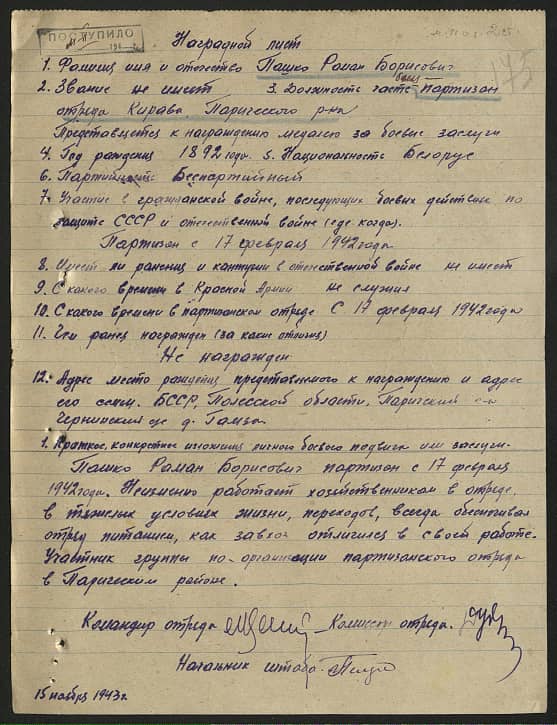 ПОСТУПИЛО
Наградной лист
1. Фамилия имя и отечество Пашко Раман Борисович
2. Звание не имеет 3. Должность часть боец партизан
отряда Кирава Паричского р-на
Представляется к награждению медалью за боевые заслуги
4. Год рождения 1892 года. 5. Национальность Беларус
6. Партийность Беспартийный
7. Участие в гражданской войне, последующих боевых действиях по
защите СССР и отечественной войне (где когда).
Партизан с 17 февраля 1942 года
8. Имеет ли ранения и кантузии в отечественной войне не имеет
9. С какого времени в Красной Армии не служил
10. С какого времени в партизанском отряде С 17 февраля 1942 года
11. Чем ранее награжден (за какие отличия)
Не награжден
12. Адрес место рождения представляемого к награждению и адрес
его семьи. БССР, Полесской области, Паричский р-н
Чернинский с/с д.
1. Краткое, конкретное изложения личного боевого подвига или заслуги.
Пашко Раман Борисович партизан с 17 февраля
1942 года. Неизменно работает хозяйственником в отряде,
в тяжелых условиях жизни, переходов, всегда обеспечивал
отряд питанием, как завхоз отличился в своей работе.
Участник группы по организации партизанского отряда
в Паричском районе.
Командир отряда Комиссар отряда.
Начальник штаба
15 ноября 1943 г.